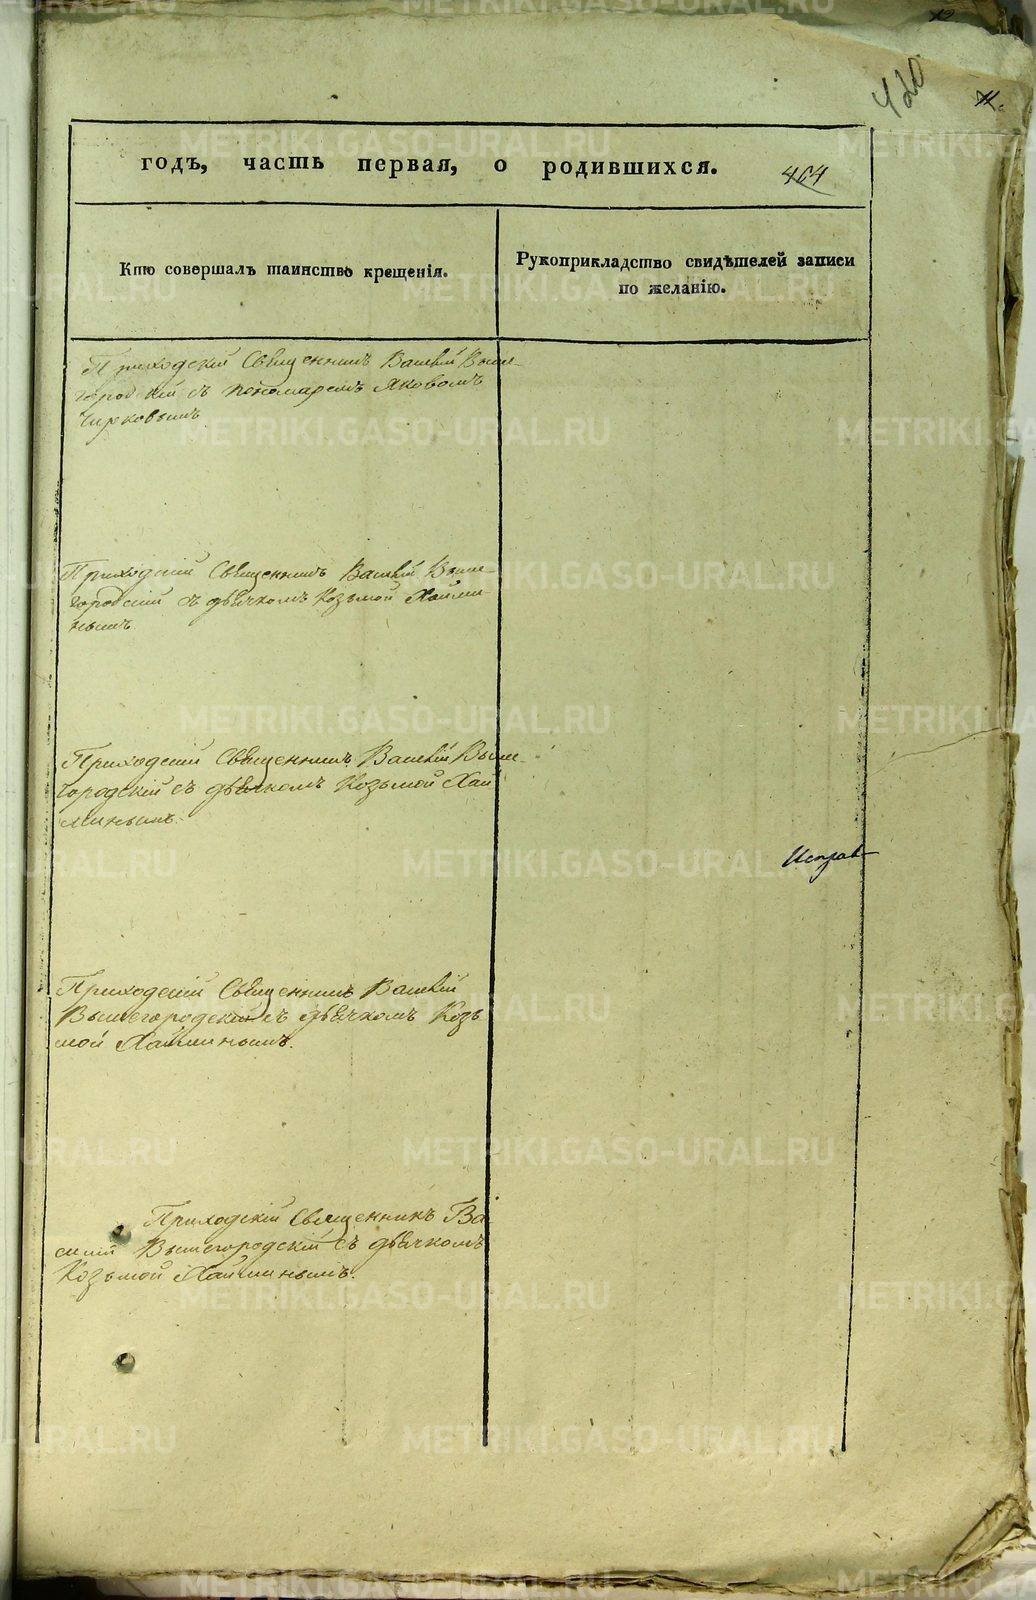 420
11.
годъ, часть первая, о родившихся.
464
Кто совершалъ таинство крещенія.
Рукоприкладство свидѣтелей записи
по желанію.
Приходскій Священникъ Василій Выше-
городскій съ пономаремъ Яковомъ
Чирковымъ
Приходскій Священникъ Василій Выше-
городскій съ дьячкомъ Козьмой Хайми-
нымъ
Приходскій Священникъ Василій Выше-
городскій съ дьячкомъ Козьмой Хай
минымъ.
Исправ
Приходскій Священникъ Василій
Вышегородскій съ дьячкомъ Козь
мой Хайминымъ.
Приходскій Священникъ Ва
силій Вышегородскій съ дьячкомъ
Козьмой Хайминымъ.
METRIKI.GASO-URAL.RU